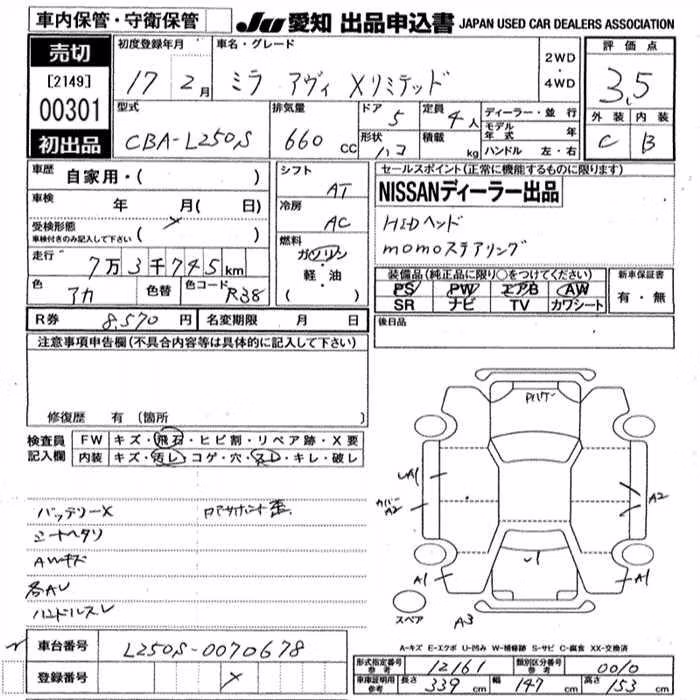 車内保管・守衛保管
JU 愛知 出品申込書 JAPAN USED CAR DEALERS ASSOCIATION
売切
[2149]
00301
初出品
初度登録年月
17 2月
車名・グレード
ミラ アヴィ Xリミテッド
2WD
・
4WD
評価点
3.5
型式
CBA-L250S
排気量
660 cc
ドア 5
定員 4人
形状 ハコ
積載 kg
ディーラー・並行
モデル年式 年
ハンドル 左・右
外装 内装
C B
車歴 自家用・( )
車検 年 月( 日)
受検形態
車検付きのみ記入して下さい ( × )
走行 7万3千745km
色 アカ 色替 色コード R38
シフト AT
冷房 AC
燃料 ガソリン
・
軽・油
( )
セールスポイント(正常に機能するものに限ります)
NISSANディーラー出品
HIDヘッド
momoステアリング
装備品(純正品に限り○をつけてください)
PS PW エアB AW
SR ナビ TV カワシート
新車保証書
有・無
R券 8,570円 名変期限 月 日
後日品
注意事項申告欄(不具合内容等は具体的に記入して下さい)
修復歴 有(箇所 )
検査員記入欄
FW キズ・飛石・ヒビ割・リペア跡・X要
内装 キズ・汚レ・コゲ・穴・スレ・キレ・破レ
バッテリーX
シートヘタリ
AWキズ
各AU
ハンドルスレ
A1
カバー
A2
A2
A1
U1
A1
スペア
A3
A-キズ E-エクボ U-凹み W-補修跡 S-サビ C-腐食 XX-交換済
車台番号 L250S-0070678
登録番号 ×
形式指定番号 参考 12161 類別区分番号 参考 0010
車庫証明用 参考 長さ 339cm 幅 147cm 高さ 153cm